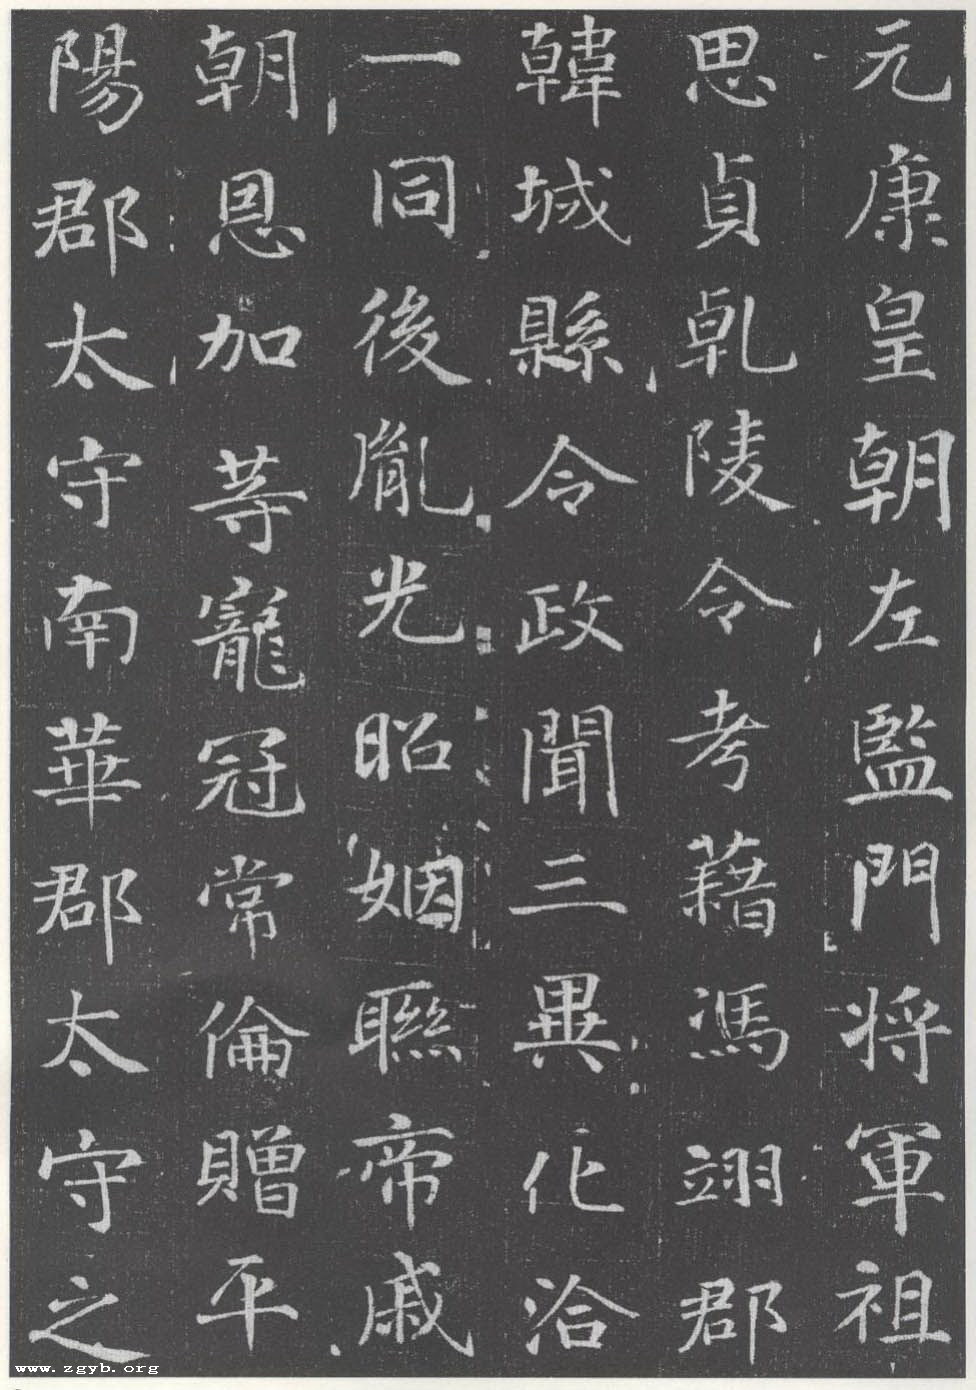 元康皇朝左監門将軍祖
思貞乹陵令考藉馮翊郡
韓城縣令政聞三異化洽
一同後胤光昭姻聯帝戚
朝恩加等寵冠常倫贈平
陽郡太守南華郡太守之
www.zgyb.org